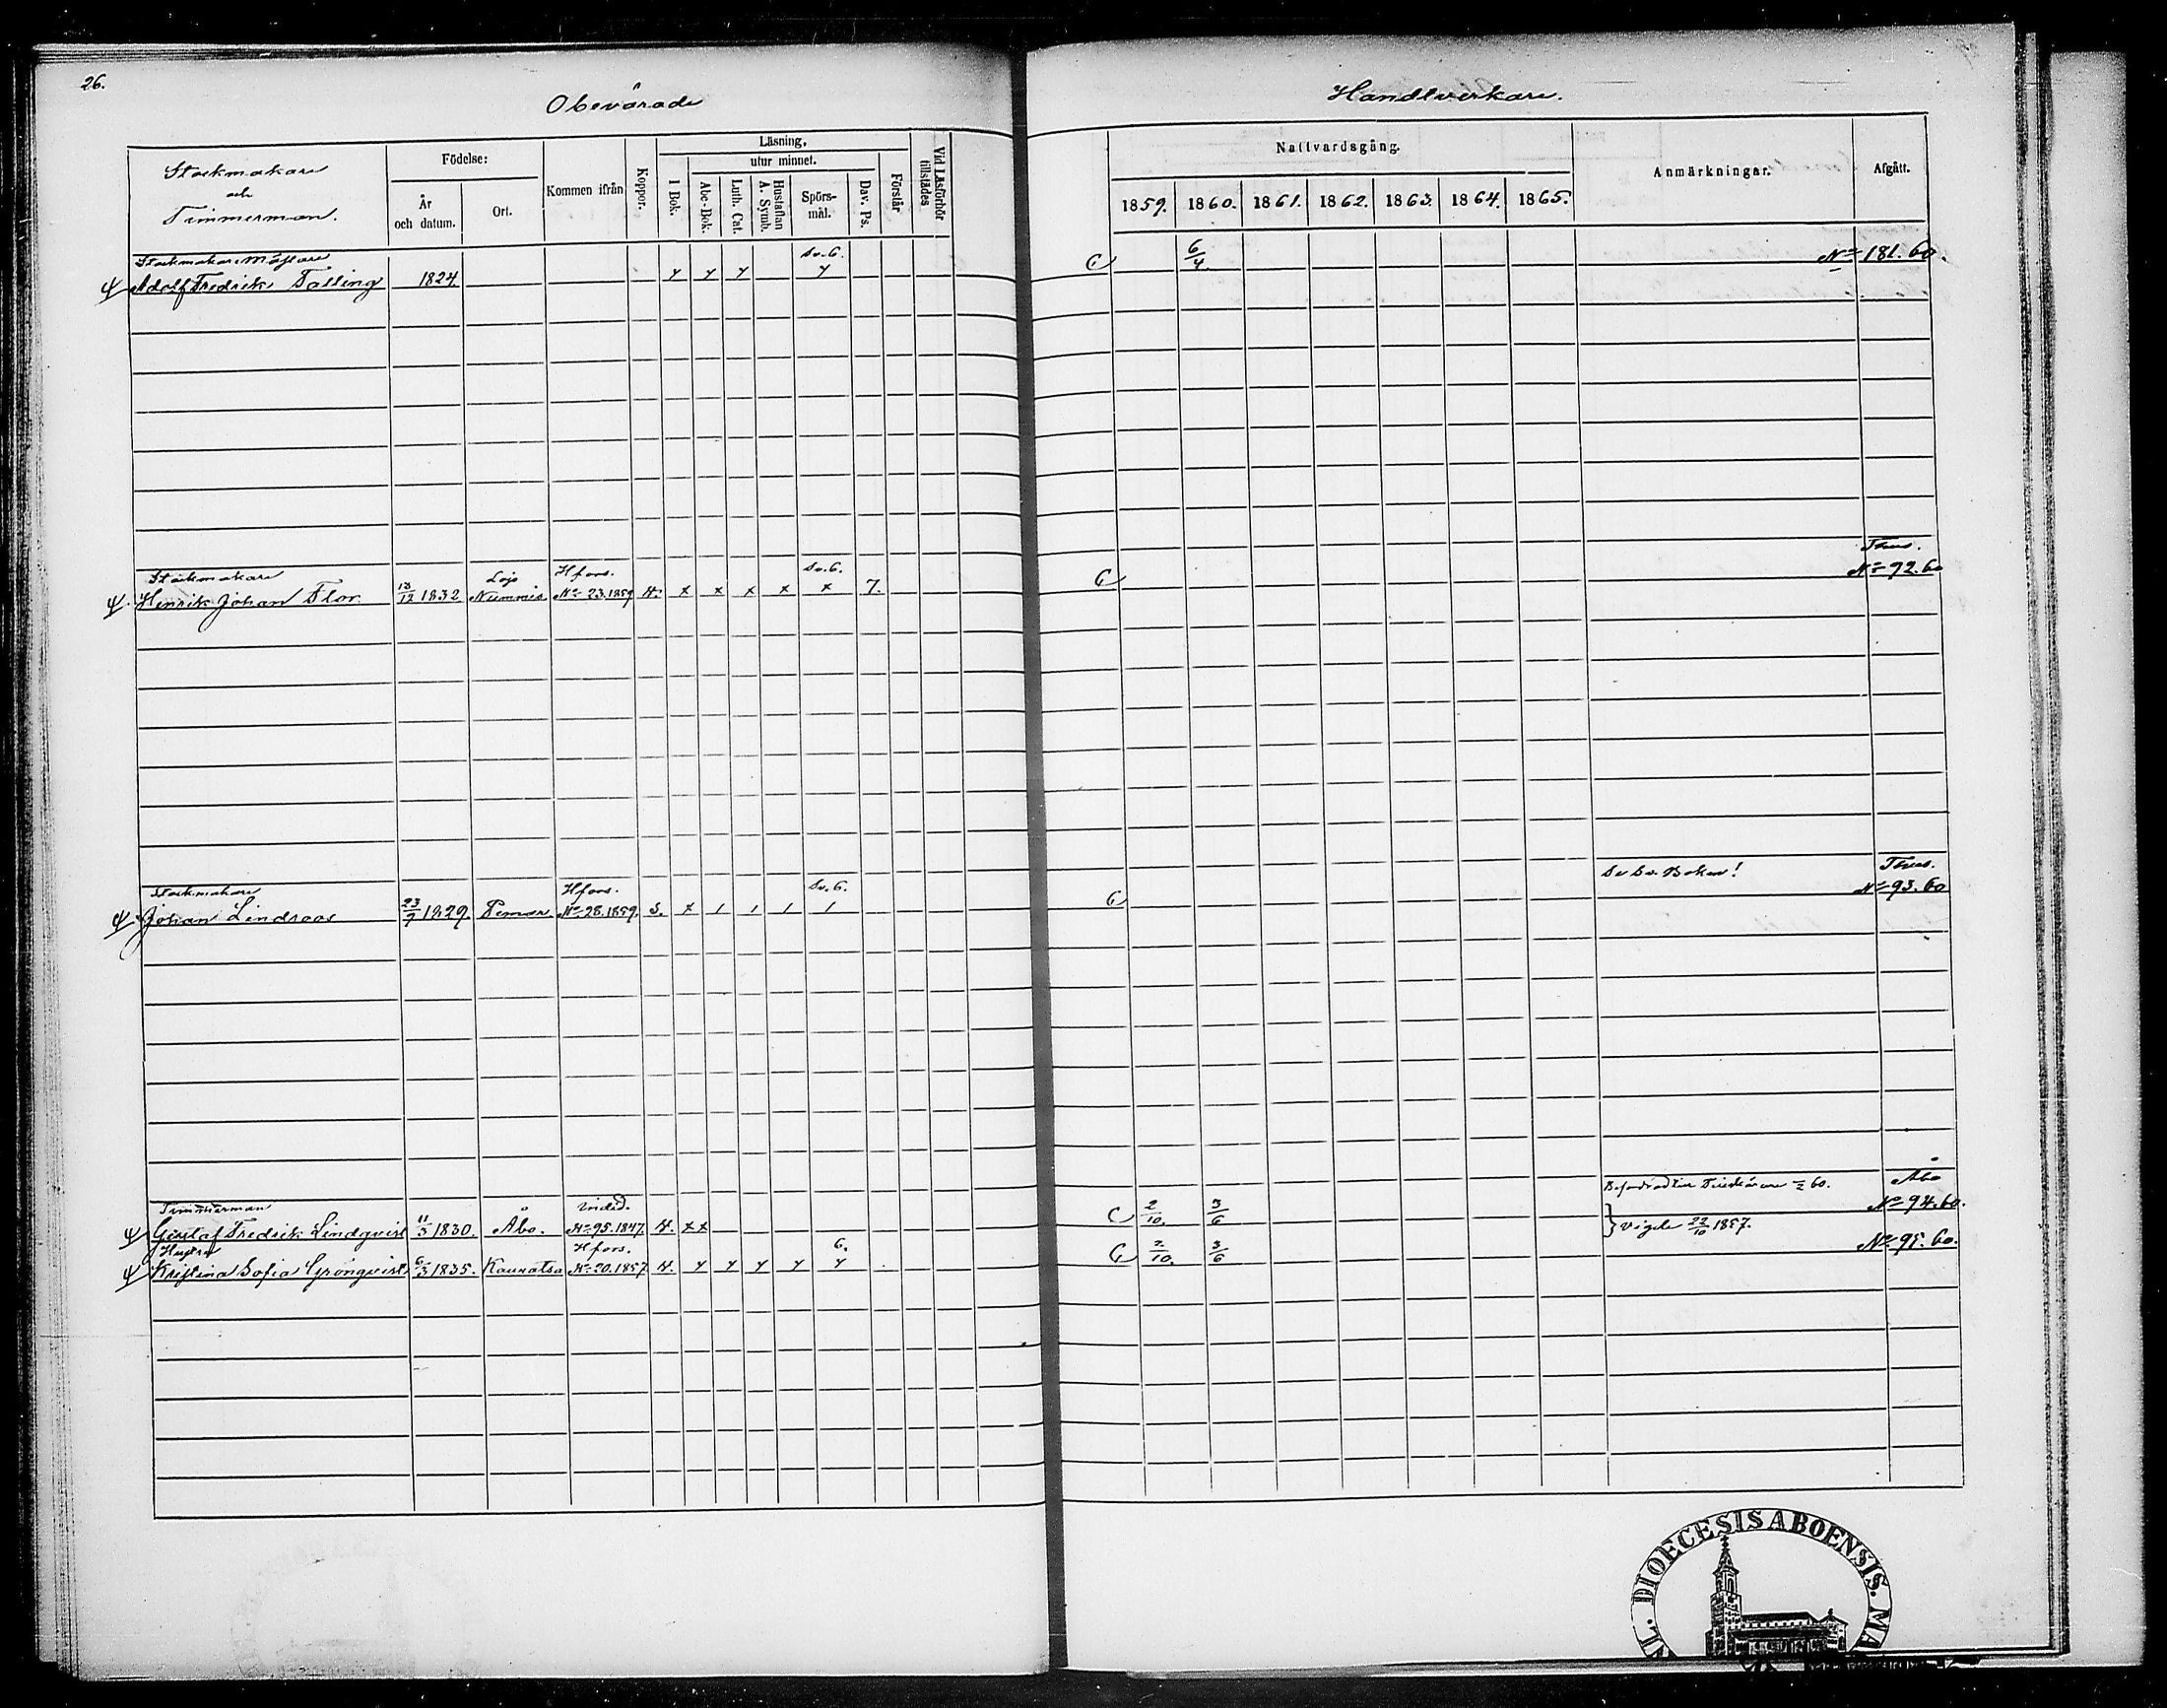 26.
Obevärade
Handtverkare.
Stockmakare
och
Timmerman.
Födelse:
År
och datum.
Ort.
Kommen ifrån
Koppor.
Läsning,
I Bok.
utur minnet.
Abc-Bok.
Luth. Cat.
Hustaflan
A. Symb.
Spörs-
mål.
Dav. Ps.
Förstår
Vid Läsförhör
tillstädes
Nattvardsgång.
1859. 1860. 1861. 1862. 1863. 1864. 1865.
Anmärkningar.
Afgått.
Stockmakare Mästare Sv. 6. 6/4 No 181. 60.
Adolf Fredrik Talling 1824 C
Stockmakare Lojo Hfors. Sv. 6. Thus.
Henrik Johan Flor. 13/12 1832 Nummis No 23. 1859 H. x x x x x 7. C No 92. 60
Stockmakare Hfors. Sv. 6. Se Sv. Boken! Thus.
Johan Lindroos 23/7 1829. Pemar No 28. 1859. S. x 1 1 1 1 C No 93. 60
Timmerman Åbo
Gustaf Fredrik Lindqvist 11/3 1830. Åbo. No 95. 1847. H. x x C 2/10. 3/6 } Vigde 22/10 1857. No 94. 60.
Hustru Hfors. 6.
Kristina Sofia Grönqvist 6/3 1835. Kauvatsa No 20. 1857 H. C 2/10. 3/6 No 95. 60.
DIOECESIS ABOENSIS. MA